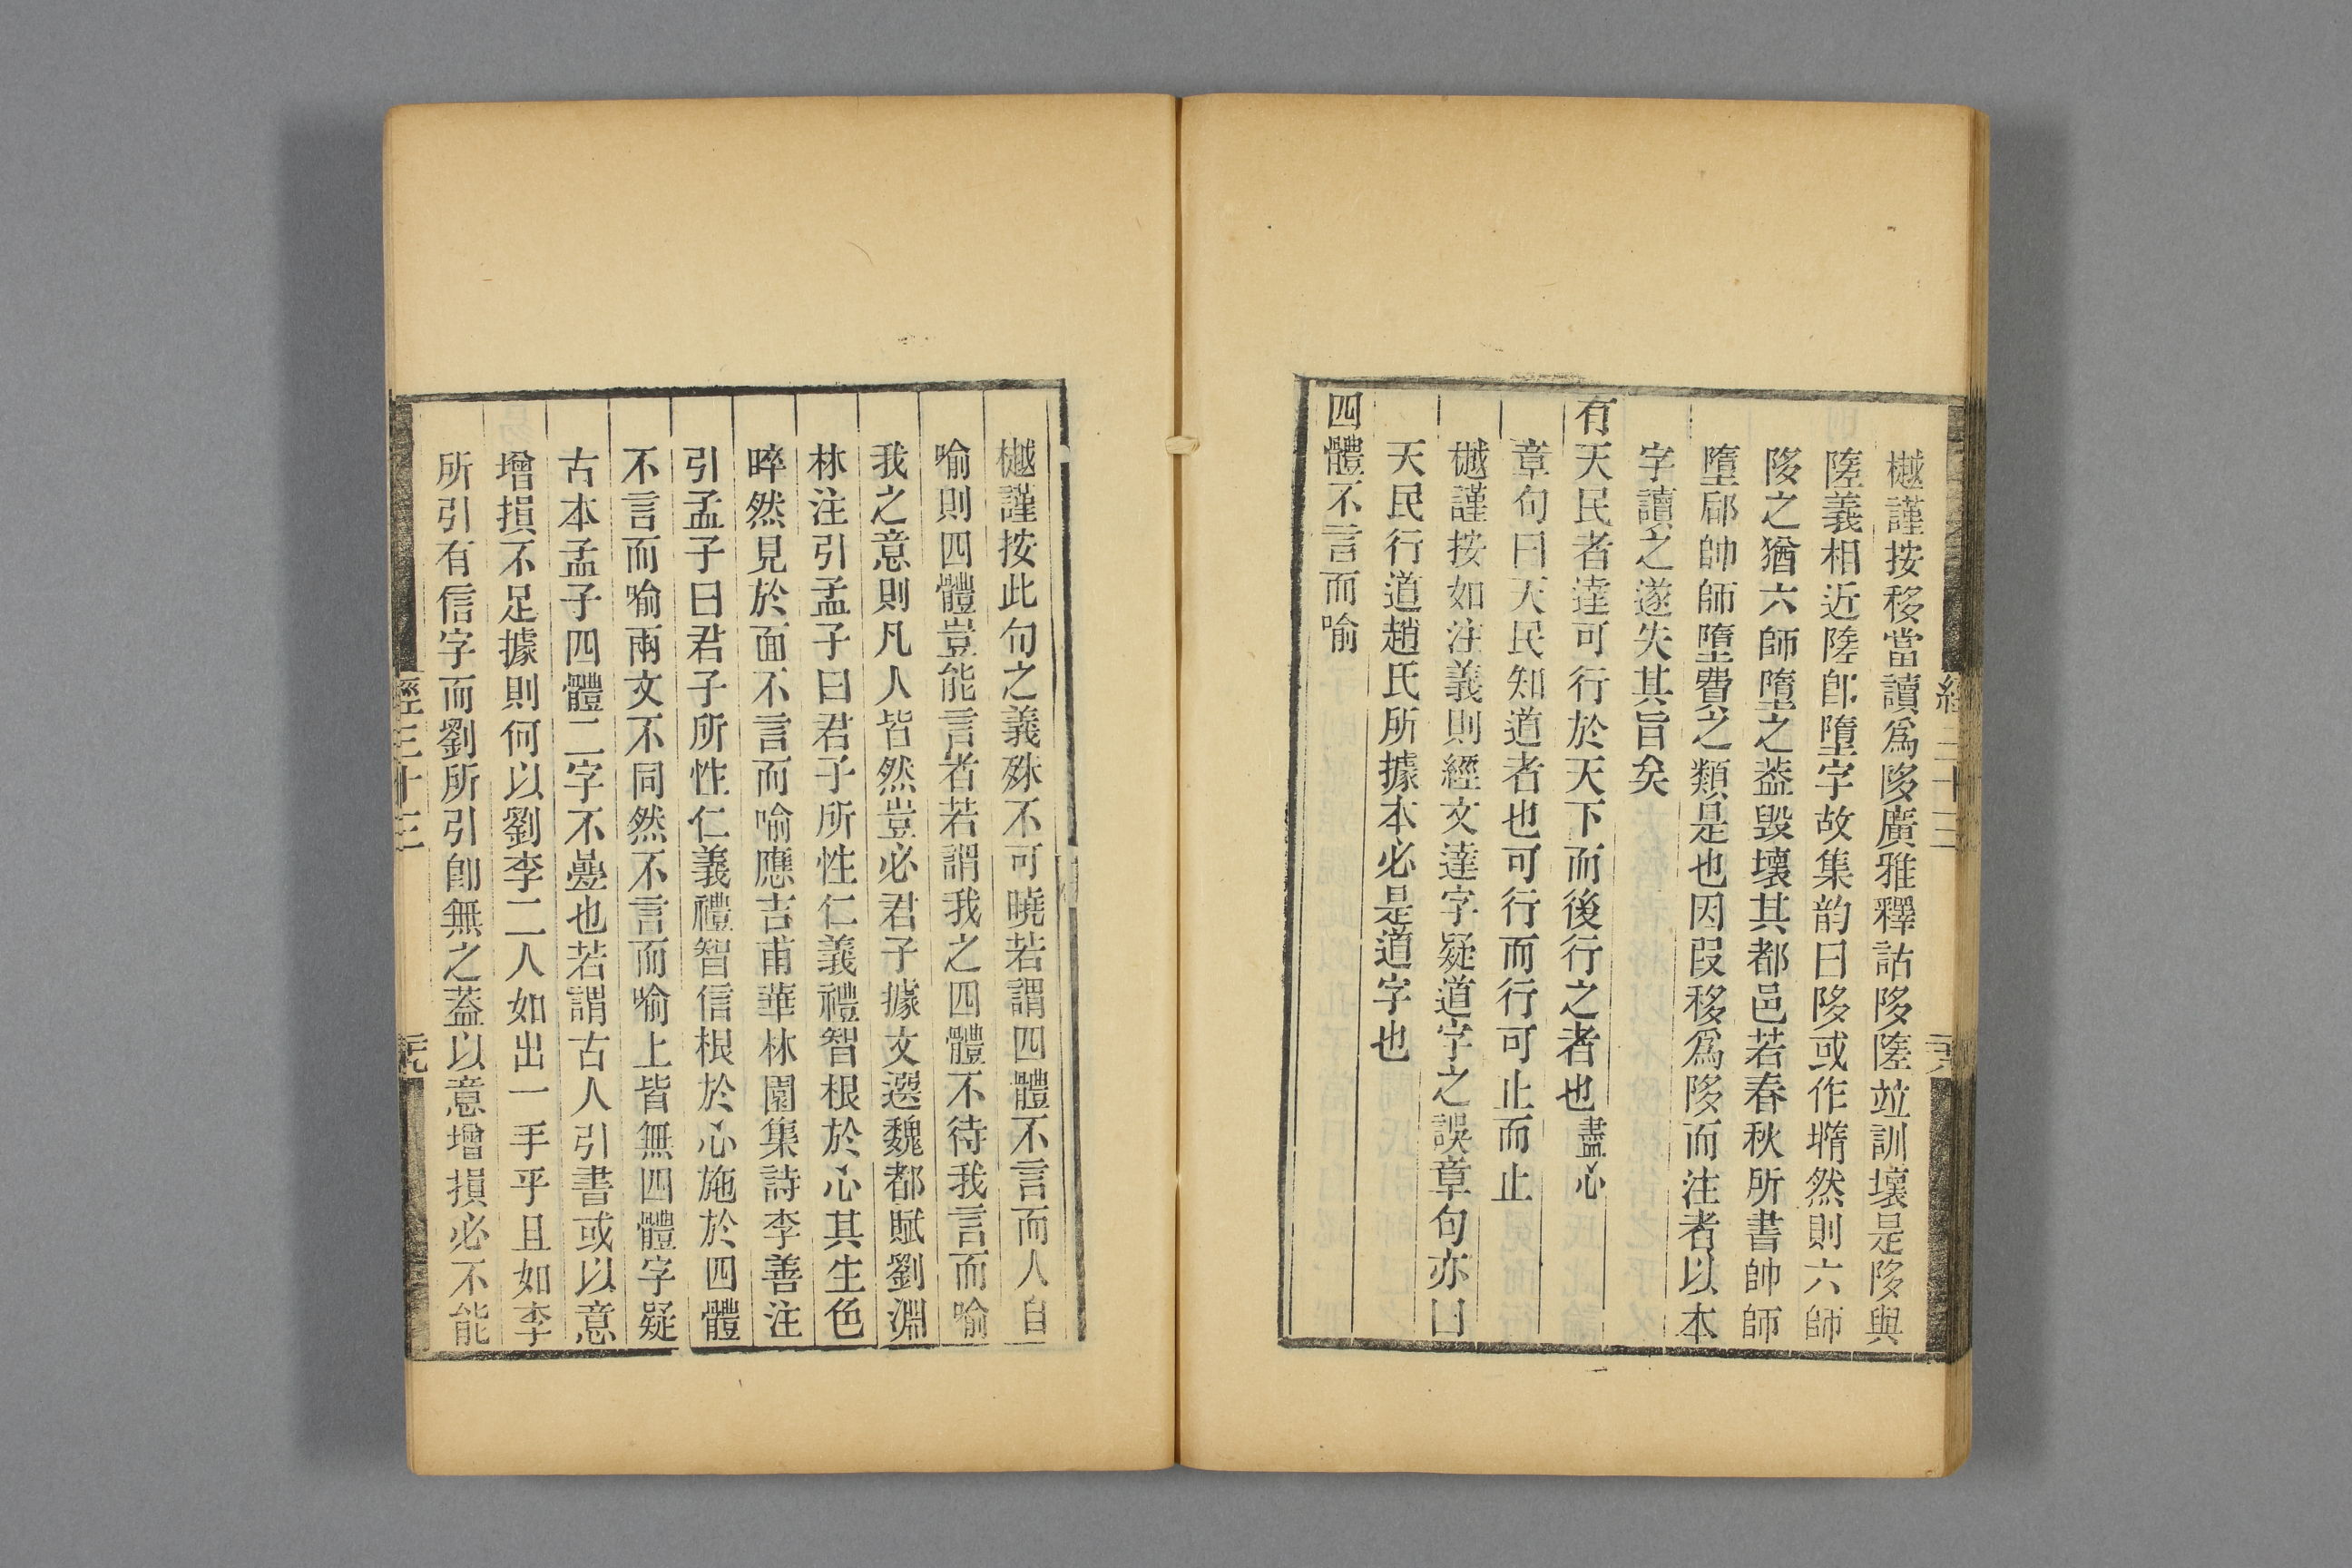 樾謹按移當讀爲陊廣雅釋詁陊隓竝訓壞是陊與
隓義相近隓卽墮字故集韵曰陊或作墮然則六師
陊之猶六師墮之葢毀壞其都邑若春秋所書帥師
墮郈帥師墮費之類是也因叚移爲陊而注者以本
字讀之遂失其旨矣
有天民者達可行於天下而後行之者也盡心
章句曰天民知道者也可行而行可止而止
樾謹按如注義則經文達字疑道字之誤章句亦曰
天民行道趙氏所據本必是道字也
四體不言而喻
樾謹按此句之義殊不可曉若謂四體不言而人自
喻則四體豈能言者若謂我之四體不待我言而喻
我之意則凡人皆然豈必君子據文選魏都賦劉淵
林注引孟子曰君子所性仁義禮智根於心其生色
睟然見於面不言而喻應吉甫華林園集詩李善注
引孟子曰君子所性仁義禮智信根於心施於四體
不言而喻兩文不同然不言而喻上皆無四體字疑
古本孟子四體二字不疊也若謂古人引書或以意
增損不足據則何以劉李二人如出一手乎且如李
所引有信字而劉所引卽無之葢以意增損必不能
經三十三